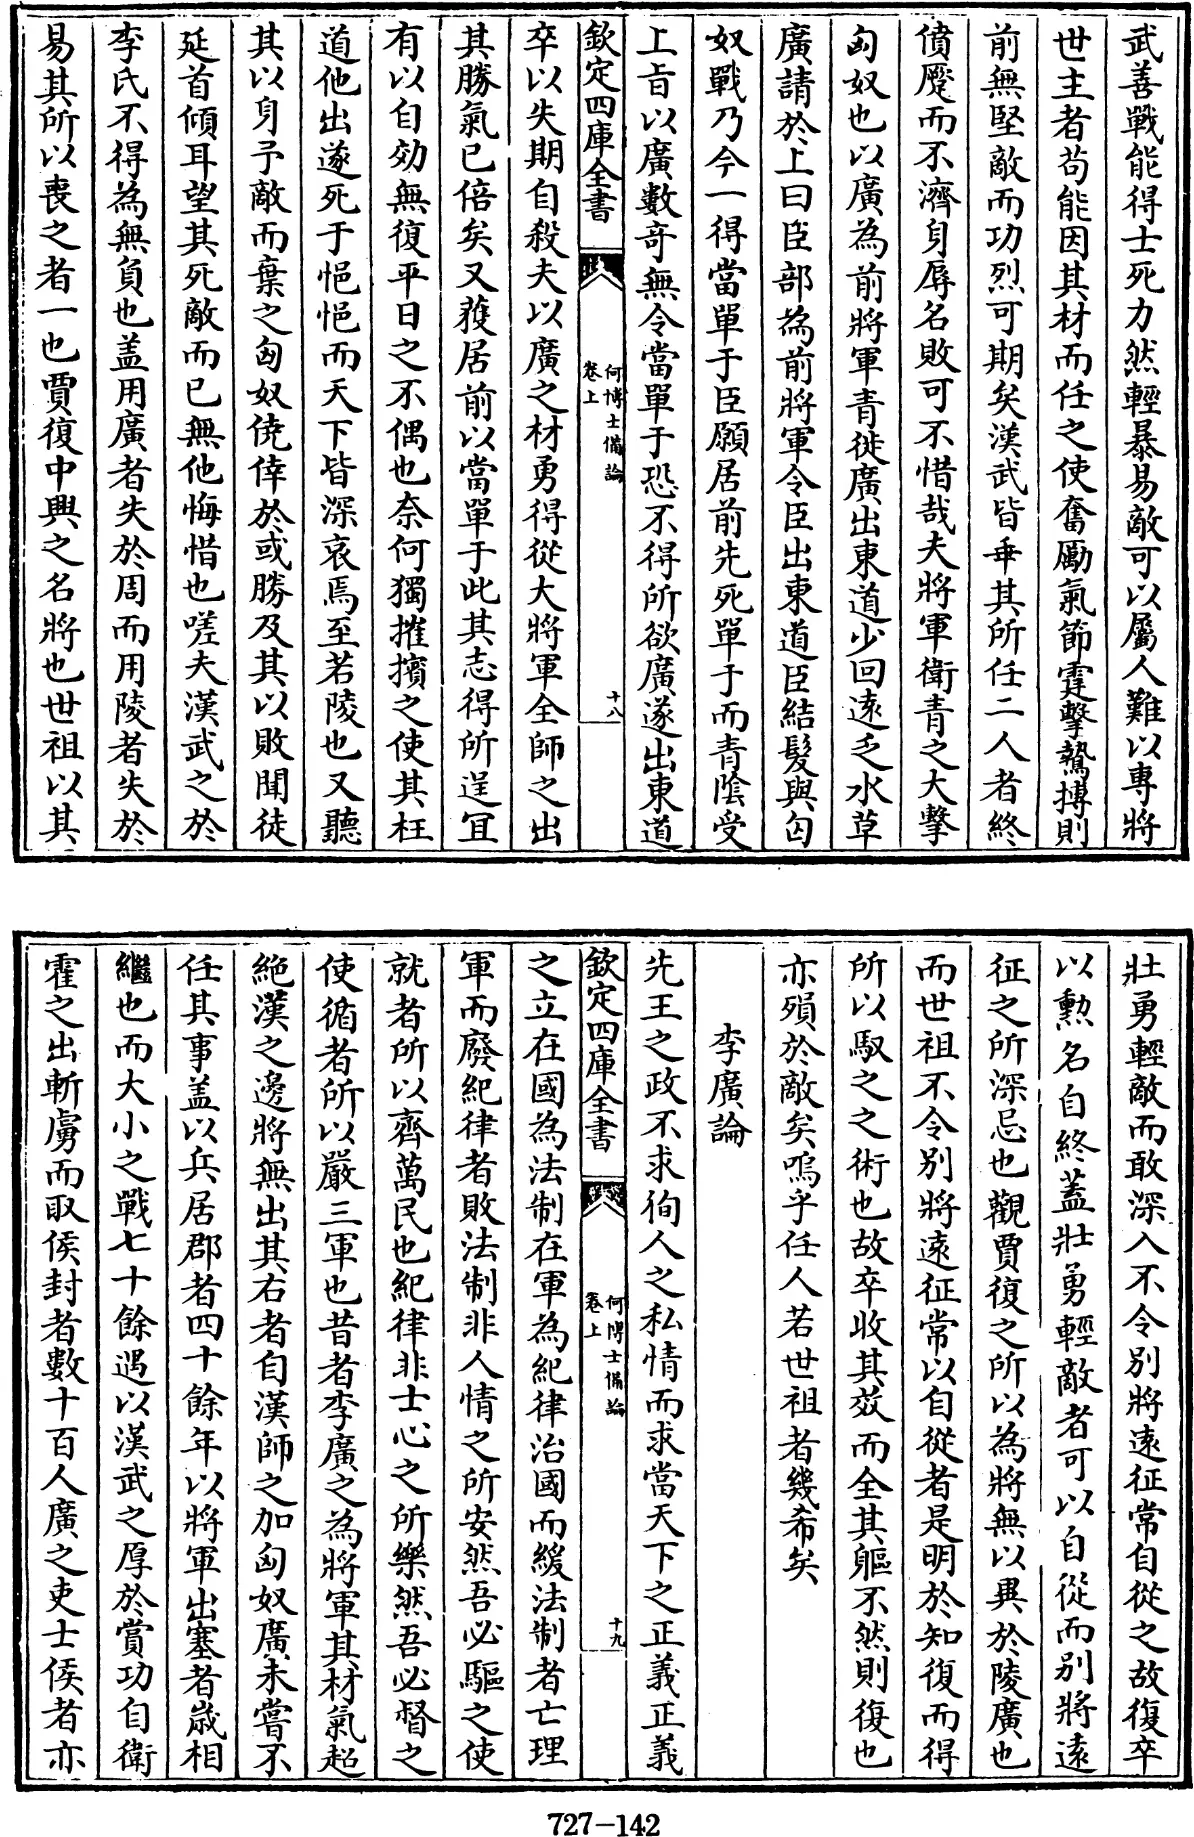 武善戰能得士死力然輕暴易敵可以屬人難以專將
世主者苟能因其材而任之使奮勵氣節霆擊鷙搏則
前無堅敵而功烈可期矣漢武皆乖其所任二人者終
僨蹷而不濟身辱名敗可不惜哉夫將軍衛青之大擊
匈奴也以廣為前將軍青徙廣出東道少回遠乏水草
廣請於上曰臣部為前將軍令臣出東道臣結髮與匈
奴戰乃今一得當單于臣願居前先死單于而青陰受
上旨以廣數奇無令當單于恐不得所欲廣遂出東道
欽定四庫全書
何博士備論
卷上
十八
卒以失期自殺夫以廣之材勇得從大將軍全師之出
其勝氣已倍矣又獲居前以當單于此其志得所逞宜
有以自効無復平日之不偶也奈何獨摧擯之使其枉
道他出遂死于悒悒而天下皆深哀焉至若陵也又聽
其以身予敵而棄之匈奴僥倖於或勝及其以敗聞徒
延首傾耳望其死敵而已無他悔惜也嗟夫漢武之於
李氏不得為無負也盖用廣者失於周而用陵者失於
易其所以喪之者一也賈復中興之名將也世祖以其
壯勇輕敵而敢深入不令别將遠征常自從之故復卒
以勲名自終葢壯勇輕敵者可以自從而别將遠
征之所深忌也觀賈復之所以為將無以異於陵廣也
而世祖不令别將遠征常以自從者是明於知復而得
所以馭之之術也故卒收其效而全其軀不然則復也
亦殞於敵矣嗚乎任人若世祖者幾希矣
李廣論
先王之政不求徇人之私情而求當天下之正義正義
欽定四庫全書
何博士備論
卷上
十九
之立在國為法制在軍為紀律治國而緩法制者亡理
軍而廢紀律者敗法制非人情之所安然吾必驅之使
就者所以齊萬民也紀律非士心之所樂然吾必督之
使循者所以嚴三軍也昔者李廣之為將軍其材氣超
絶漢之邊將無出其右者自漢師之加匈奴廣未嘗不
任其事盖以兵居郡者四十餘年以將軍出塞者歲相
繼也而大小之戰七十餘遇以漢武之厚於賞功自衛
霍之出斬虜而取侯封者數十百人廣之吏士侯者亦
727-142